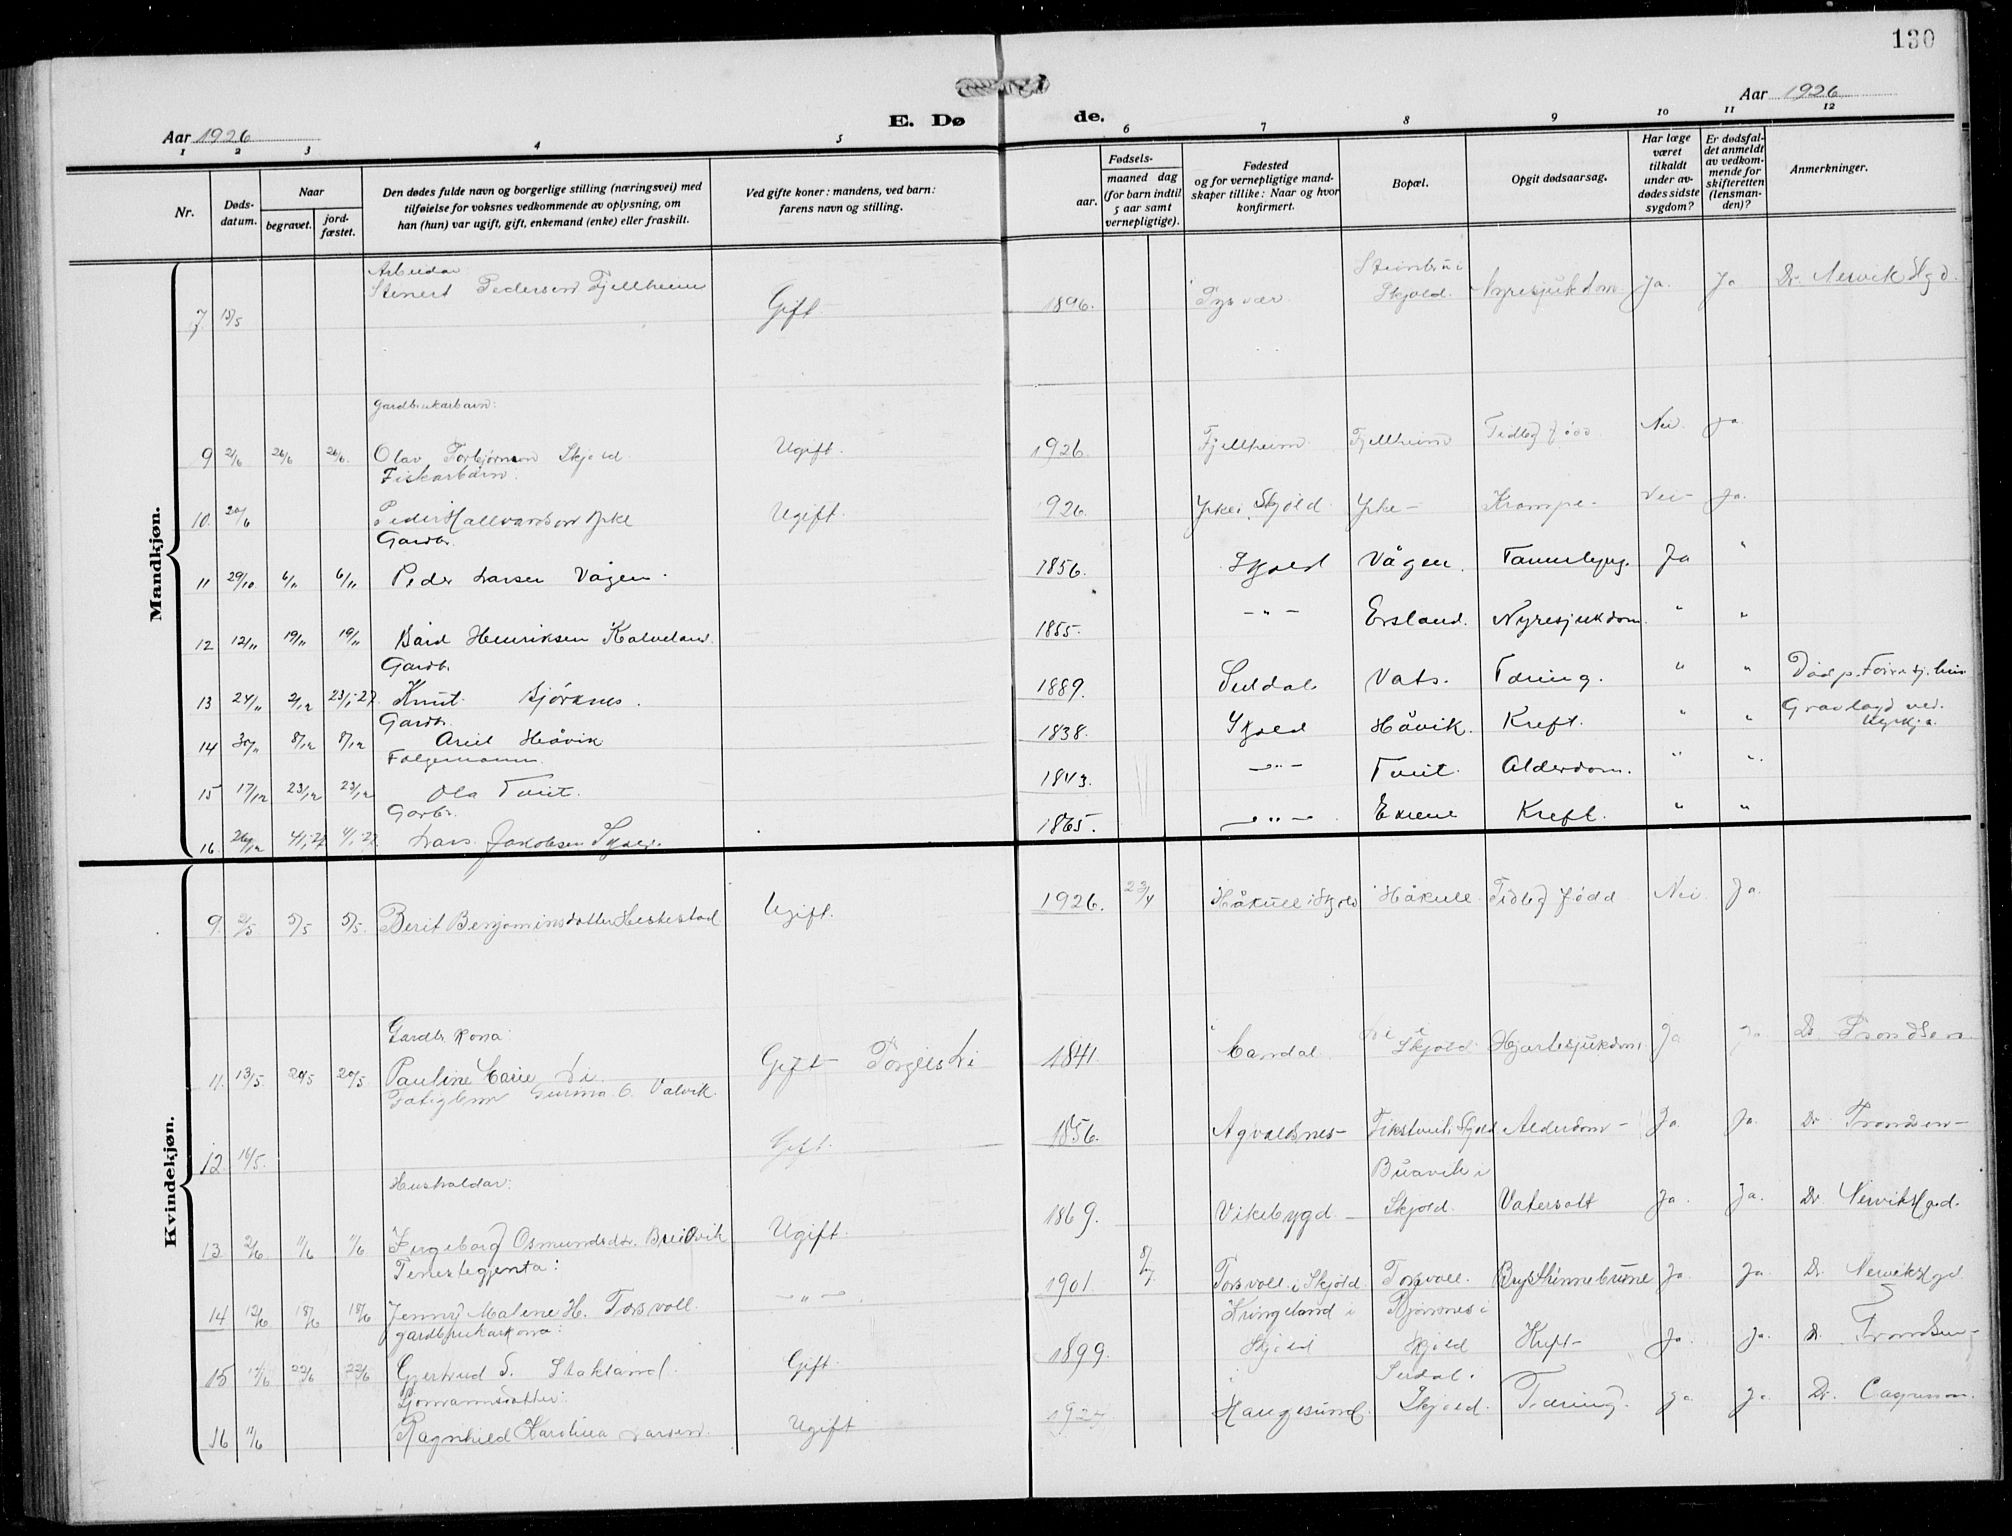 130
Aar 1926
E. Dø
de.
Aar 1926
1 2 3 4 5 6 7 8 9 10 11 12
Nr.
Døds-
datum.
Naar
begravet.
jord-
fæstet.
Den dødes fulde navn og borgerlige stilling (næringsvei) med
tilføielse for voksnes vedkommende av oplysning, om
han (hun) var ugift, gift, enkemand (enke) eller fraskilt.
Ved gifte koner: mandens, ved barn:
farens navn og stilling.
Fødsels-
aar.
maaned dag
(for barn indtil
5 aar samt
vernepligtige).
Fødested
og for vernepligtige mand-
skaper tillike: Naar og hvor
konfirmert.
Bopæl.
Opgit dødsaarsag.
Har læge
været
tilkaldt
under av-
dødes sidste
sygdom?
Er dødsfal-
det anmeldt
av vedkom-
mende for
skifteretten
(lensman-
den)?
Anmerkninger.
Mandkjøn.
Arbeidar
7 15/5 Steinert Pedersen Fjellheim Gift 1896. Tysvær Skjold. Nyresjukdom Ja. Ja Dr. Nervik Hgd.
Gardbrukarbarn:
9 2/6 26/6 26/6. Olav Torbjørnson Skjold Ugift. 1926. Fjellheim Fjellheim Tidleg fødd Nei. Ja.
Fiskarbarn.
10. 20/6 Peder Hallvardson Ypke Ugift. 926. Ypke i Skjold Ypke – Krampe – Nei – Ja.
Gardbr.
11 29/10 6/11 6/11 Peder Larsen Vågen. 1856. Skjold Vågen. Ja "
12 12/11 19/11 19/11 Bård Henriksen Kalveland 1855. – " – Ersland. Nyresjukdom. " "
Gardbr.
13 24/11 2/12 23/1-27. Knut Bjørknes. 1889. Suldal Vats. Tæring. " "
Gardbr.
14 30/11 8/12 8/12 Håvik 1838. Skjold Håvik. Kreft. " " Gravlagd ved Kyrkja.
Folgemann.
15 17/12 23/12 23/12 Ola Tveit. 1843. – " – Tveit. Alderdom. " "
Gardbr.
16. 26/12 4/1-27 4/1-27. Lars Jakobsen 1865. – " – Kreft. " "
Kvindekjøn.
9. 2/5 5/5 5/5. Berit Benjaminsdotter Hestestad Ugift. 1926. 23/4 Håkull i Skjold Håkull Tidleg fødd Nei. Ja.
Gardbr. kona:
11. 13/5. 20/5 20/5 Pauline Carie Li Gift Torgils Li 1841. Skjold Hjartesjukdom Ja Ja Dr Trondsen
12. 16/5. Gurina O. Valvik. Gift. 1856. Avaldsnes – Alderdom – Ja Ja. Dr. Trondsen –
Hushaldar:
Buavik i
13. 2/6 11/6 11/6 Ingeborg Osmundsdtr. Breidvik Ugift. 1869. Vikebygd – Skjold. Vatersott Ja. Ja. Dr Nervik Hgd.
Tenestegjenta:
14 12/6 18/6 18/6 Jenny Malene H. Torsvoll. – " – . 1901. 8/7. Torsvoll i Skjold. Torsvoll. Brysthinnebetennelse Ja. Ja. Dr. Nervik Hgd
gardbrukarkona:
Kringeland i
15 22/6 22/6 Gjertrud S. Stakland. Gift. 1899. Skjold Skjold Kreft – Ja. Ja. Dr. Trondsen –
16 11/6 Ragnhild Karolina Larsen. Ugift Haugesund. Skjold. Tæring. Ja Ja Dr.